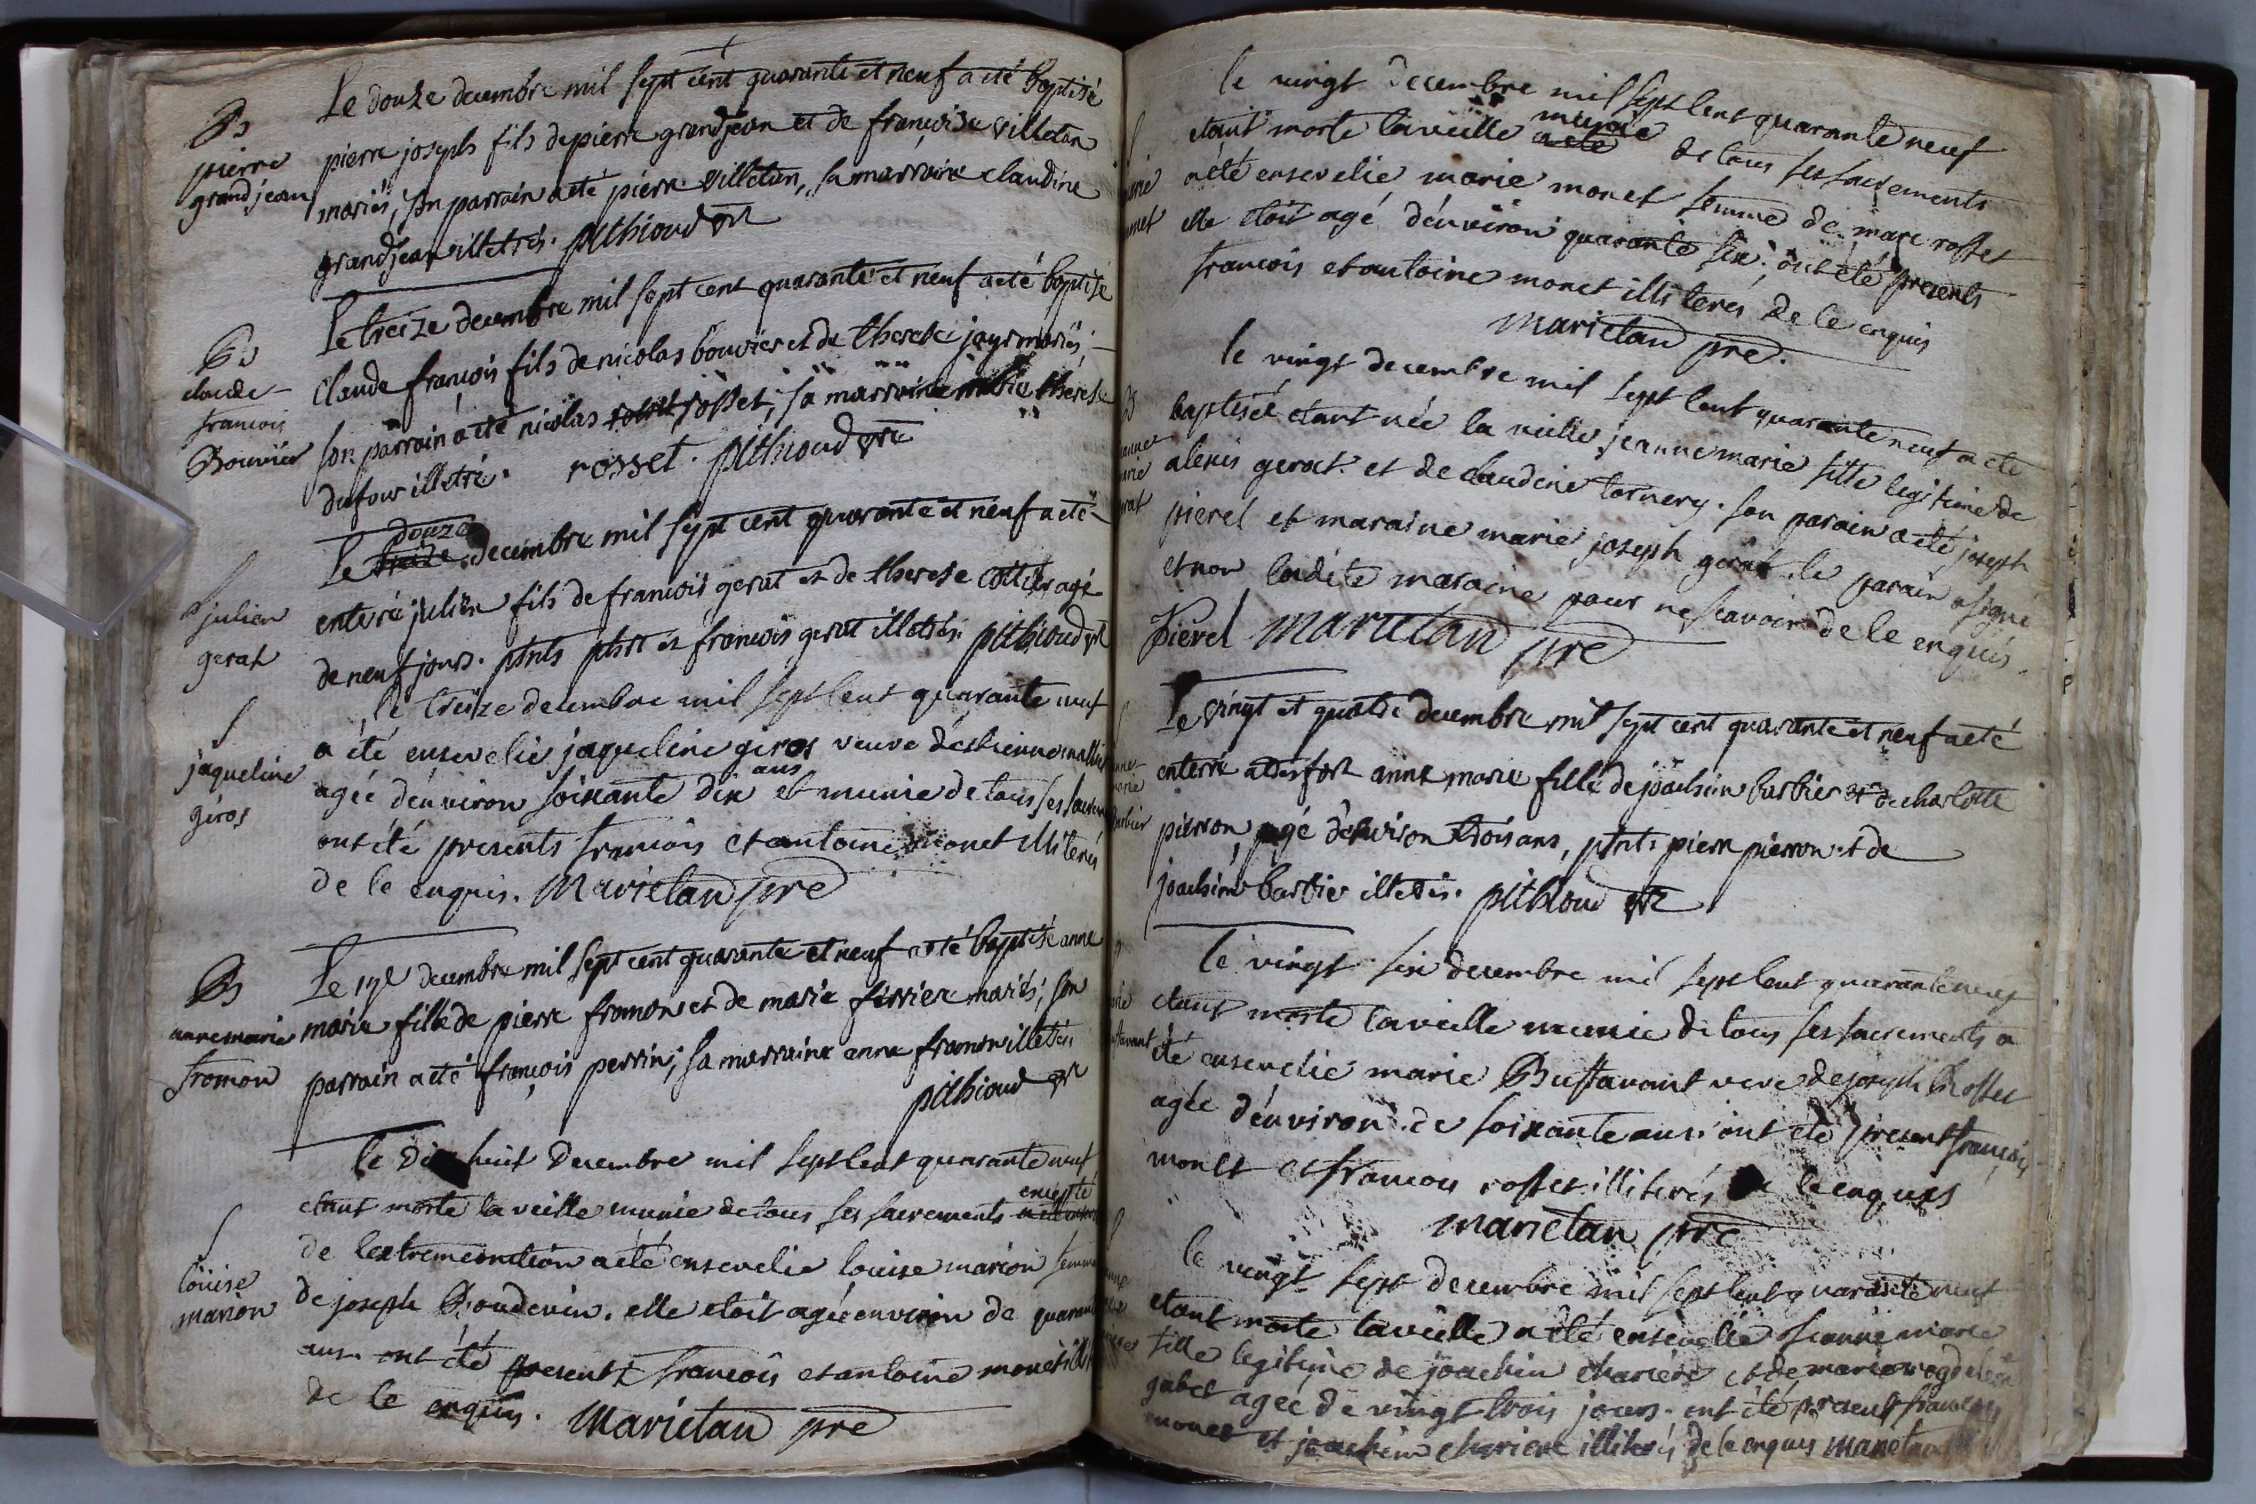 Le douze decembre mil sept cent quarante et neuf a eté baptisé
B
pierre
grandjean
pierre joseph fils de pierre grandjean et de françoise villetan
mariés, son parrain a eté pierre villetan, sa marraine claudine
grandjean illetrés. pithioud
Le treize decembre mil sept cent quarante et neuf a eté baptisé
B
claude
francois
Bouvier
claude françois fils de nicolas bouvier et de therese jays mariés,
son parrain a eté nicolas rosset, sa marraine therese
dufour illetré. rosset. pithioud
douze
Le treize decembre mil sept cent quarante et neuf a eté
julien
gerat
enteré julien fils de francois gerat et de therese agé
de neuf jours. pnts et francois gerat illetrés. pithioud
le treize decembre mil sept cent quarante neuf
S
jaqueline
giros
a été ensevelie jaqueline giros veuve
agée d'environ soixante dix ans et munie de tous ses
ont été presents francois et antoine monet illiterés
de le enquis. Marietan pre
Le decembre mil sept cent quarante et neuf a eté baptisé anne
B
anne marie
fromon
marie fille de pierre fromon et de marie ferrier mariés; son
parrain a eté françois perrin; sa marraine anne fromon illetrés
pithioud
le dix huit decembre mil sept cent quarante neuf
etant morte la veille munie de tous ses sacrements excepté
S
loüise
marion
de lextremeonction a eté ensevelie loüise marion femme
de joseph Boudevin. elle etoit agée environ de
ans ont été present francois et antoine monet
de le enquis. Marietan pre
le vingt decembre mil sept cent quarante neuf
etant morte la veille munie de tous ses sacrements
a été ensevelie marie monet femme de marc rosset
elle etoit agé d'environ quarante six, ont été presents
francois et antoine monet illiteres de le enquis
Marietan pre.
le vingt decembre mil sept cent quarante neuf a eté
baptisée etant née la veille jeanne marie fille legitime de
alexis gerat et de claudine tornery. son parain a eté joseph
pierel et maraine marie joseph gerat. le parain a signé
et non ladite maraine pour ne scavoir de le enquis.
Pierel Marietan pre
Le vingt et quatre decembre mil sept cent quarante et neuf a eté
enterré anne marie fille de joachim barbier et de charlotte
pierron, agé d'environ trois ans, pnts pierre pierron et de
joachim barbier illetrés. pithioud
le vingt six decembre mil sept cent quarante neuf
etant morte la veille munie de tous ses sacrements a
été ensevelie marie Bustavant veve de joseph Rosset
agée d'environ de soixante ans. ont eté present francois
monet et francois rosset illiterés de le enquis
Marietan pre
le vingt sept decembre mil sept cent quarante neuf
etant morte la veille a été ensevelie jeanne marie
fille legitime de joachim chariere et de marie
agée de vingt trois jours. ont été present francois
monet et joachim chariere illiterés de le enquis Marietan